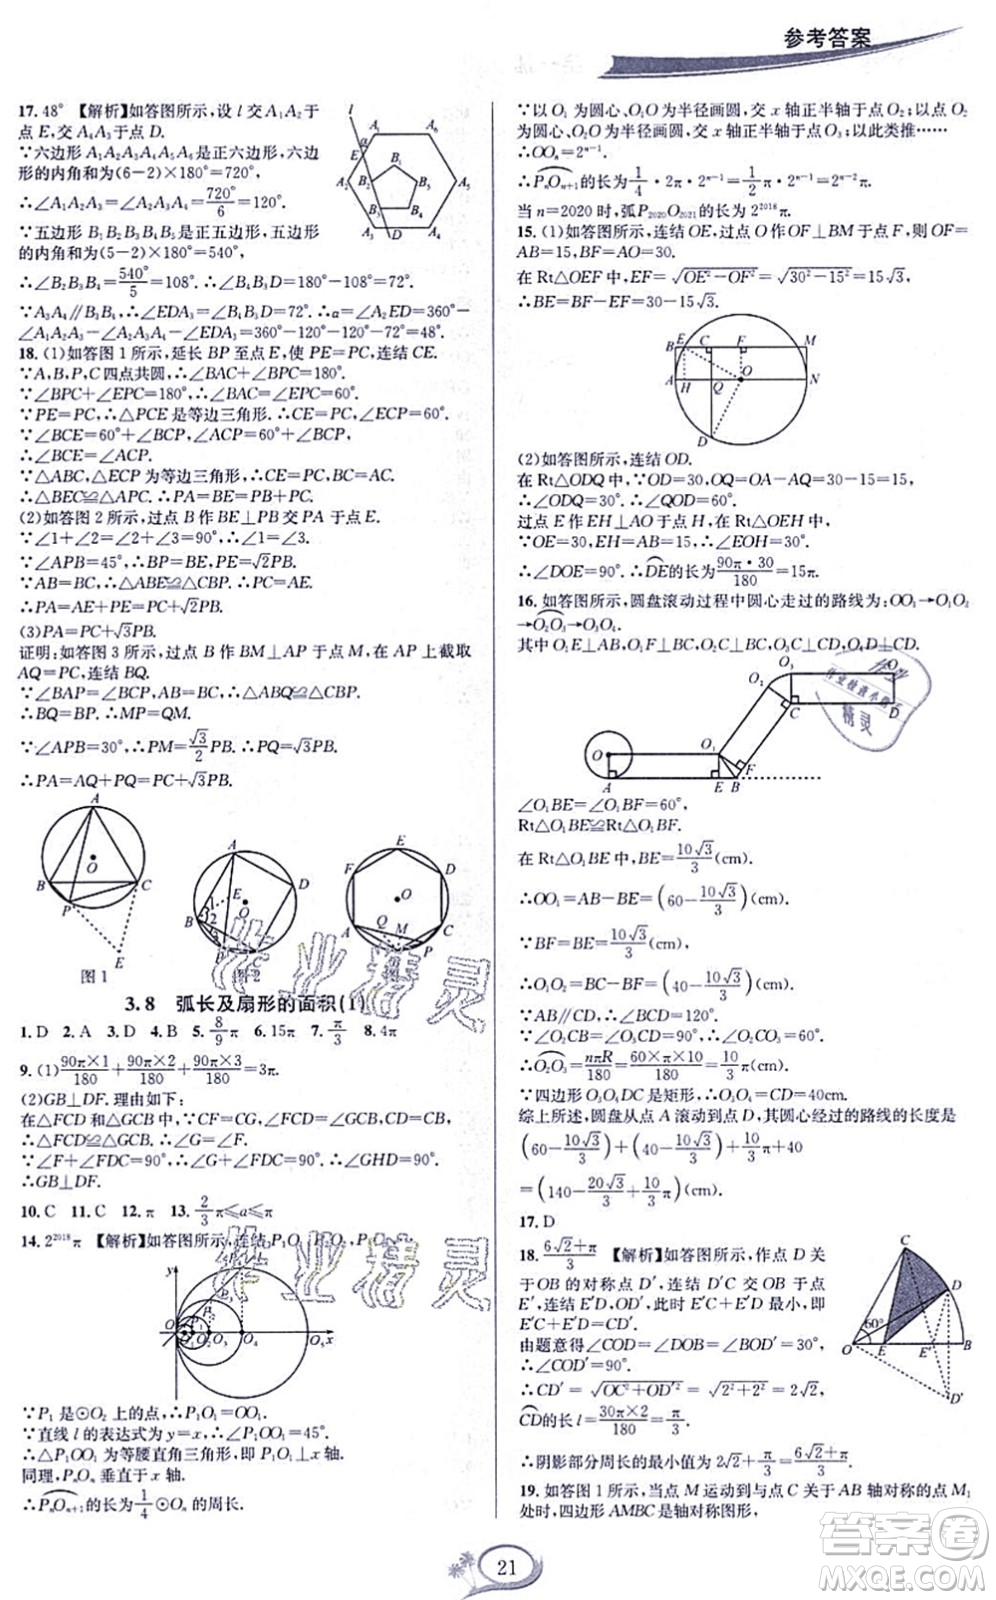 参考答案
17. 48° 【解析】如答图所示,设 l 交 A₁A₂ 于
点 E,交 A₄A₃ 于点 D.
∵六边形 A₁A₂A₃A₄A₅A₆ 是正六边形,六边
形的内角和为(6－2)×180°=720°,
∴∠A₁A₂A₃=∠A₂A₃A₄=720°/6=120°.
∵五边形 B₁B₂B₃B₄B₅ 是正五边形,五边形
的内角和为(5－2)×180°=540°,
∴∠B₂B₃B₄=540°/5=108°.∴∠B₄B₃D=180°－108°=72°.
18. (1)如答图 1 所示,延长 BP 至点 E,使 PE=PC,连结 CE.
∵A、B、P、C 四点共圆,∴∠BAC+∠BPC=180°.
∵∠BPC+∠EPC=180°,∴∠BAC=∠EPC=60°.
∵PE=PC,∴△PCE 是等边三角形.∴CE=PC,∠ECP=60°.
∵∠BCE=60°+∠BCP,∠ACP=60°+∠BCP,
∴∠BCE=∠ACP.
∵△ABC,△ECP 为等边三角形,∴CE=PC,AC=BC.
∴△BEC≌△APC.∴PA=BE=PB+PC.
(2)如答图 2 所示,过点 B 作 BE⊥PB 交 PA 于点 E.
∵∠1+∠2=∠2+∠3=90°,∴∠1=∠3.
∵∠APB=45°,∴BP=BE,∴PE=√2PB.
∵AB=BC,∴△ABE≌△CBP,∴PC=AE.
∴PA=AE+PE=PC+√2PB.
(3)PA=PC+√3PB.
证明:如答图 3 所示,过点 B 作 BM⊥AP 于点 M,在 AP 上截取
AQ=PC,连结 BQ.
∴BQ=BP.∴MP=QM.
∵∠APB=30°,∴PM=√3/2 PB.
∴PA=AQ+PQ=PC+√3PB.
图 1
图 2
3.8 弧长及扇形的面积(1)
1. D 2. A 3. D 4. B 5. 8/9π 6. 15π 7. π/3 8. 4π
9. (1)90π×1/180+90π×2/180+90π×3/180=3π.
(2)GB⊥DF.理由如下:
在△FCD 和△GCB 中,∵CF=CG,∠FCD=∠GCB,CD=CB,
∴△FCD≌△GCB.∴∠G=∠F.
∵∠F+∠FDC=90°,∴∠G+∠FDC=90°,∴∠GHD=90°.
∴GB⊥DF.
10. C 11. C 12. π 13. 2/3π≤a≤π
14. 2²⁰¹⁸π 【解析】如答图所示,连结 P₁O₁,P₂O₂,
∵P₁ 是⊙O₂ 上的点,∴P₁O₁=OO₁.
∵直线 l 的表达式为 y=x,∴∠P₁OO₁=45°.
∴△P₁OO₁ 为等腰直角三角形,即 P₁O₁⊥x 轴.
同理,PₙOₙ 垂直于 x 轴.
∴PₙOₙ₊₁的长为1/4⊙Oₙ 的周长.
∵以 O₁ 为圆心、O₁O 为半径画圆,交 x 轴正半轴于点 O₂;以 O₂
为圆心、O₂O 为半径画圆,交 x 轴正半轴于点 O₃;以此类推……
∴OOₙ=2ⁿ⁻¹.
∴PₙOₙ₊₁的长为1/4·2π·2ⁿ⁻¹=1/2π·2ⁿ⁻¹=2ⁿ⁻²π.
当 n=2020 时,弧P₂₀₂₀O₂₀₂₁的长为 2²⁰¹⁸π.
15. (1)如答图所示,连结 OE,过点 O 作 OF⊥BM 于点 F,则 OF=
AB=15,BF=AO=30.
在 Rt△OEF 中,EF=√(OE²－OF²)=√(30²－15²)=15√3,
∴BE=BF－EF=30－15√3.
(2)如答图所示,连结 OD.
在 Rt△ODQ 中,∵OD=30,OQ=OA－AQ=30－15=15,
∴∠ODQ=30°.∴∠QOD=60°.
过点 E 作 EH⊥AO 于点 H,在 Rt△OEH 中,
∵OE=30,EH=AB=15,∴∠EOH=30°.
∴∠DOE=90°.∴DE的长为90π·30/180=15π.
16. 如答图所示,圆盘滚动过程中圆心走过的路线为:OO₁→O₁O₂
→O₂O₃→O₃O₄.
∠O₁BE=∠O₁BF=60°,
Rt△O₁BE≌Rt△O₁BF.
在 Rt△O₁BE 中,BE=10√3/3(cm).
∴OO₁=AB－BE=(60－10√3/3)(cm).
∵BF=BE=10√3/3(cm),
∴O₁O₂=BC－BF=(40－10√3/3)(cm).
∵AB∥CD,∴∠BCD=120°.
∵∠O₂CB=∠O₃CD=90°,∴∠O₂CO₃=60°.
∴O₂O₃的长=nπR/180=60×π×10/180=10/3π(cm).
∵四边形 O₃O₄DC 是矩形,∴O₃O₄=CD=40cm.
综上所述,圆盘从点 A 滚动到点 D,其圆心经过的路线的长度是
(60－10√3/3)+(40－10√3/3)+10/3π+40
=(140－20√3/3+10/3π)(cm).
17. D
18. (6√2+π)/3 【解析】如答图所示,作点 D 关
于OB 的对称点 D′,连结 D′C 交 OB 于点
E′,连结 E′D、OD′,此时 E′C+E′D 最小,即
E′C+E′D=CD′.
由题意得∠COD=∠DOB=∠BOD′=30°,
∴∠COD′=90°.
∴CD′=√(OC²+OD′²)=√(2²+2²)=2√2,
CD的长 l=30π×2/180=π/3,
∴阴影部分周长的最小值为 2√2+π/3=(6√2+π)/3.
19. 如答图 1 所示,当点 M 运动到与点 C 关于 AB 轴对称的点 M₁
处时,四边形 AMBC 是轴对称图形,
作业精灵
答案圈
MXQE.COM
21